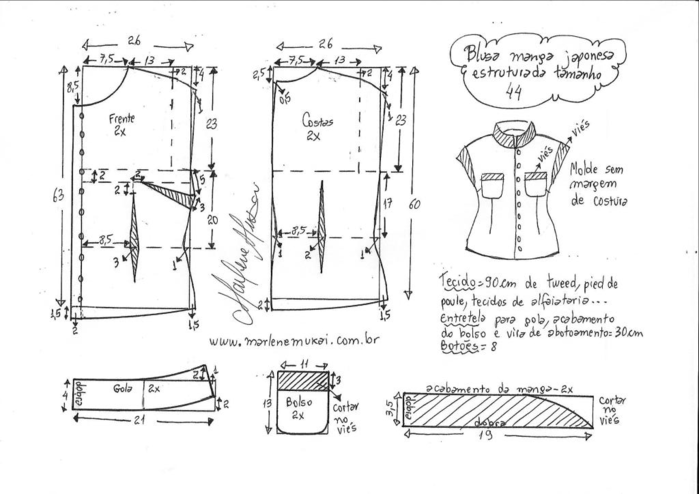 26
7,5
13
2
4
1
8,5
Frente
2x
23
63
2
2
2
5
3
20
8,5
3
1
1,5
2
1,5
26
7,5
13
2
4
2,5
0,5
1
Costas
2x
23
17
60
8,5
1
2
1
2
1,5
Marlene Mukai
www.marlenemukai.com.br
Blusa manga japonesa
estruturada tamanho
44
viés
viés
Molde sem
margem
de costura
Tecido=90cm de tweed, pied de
poule, tecidos de alfaiataria...
Entretela para gola, acabamento
do bolso e vila de abotoamento=30cm
Botões=8
4
dobra
Gola
2x
2
1
2
21
11
3
13
Bolso
2x
Cortar
no
viés
acabamento da manga-2x
3,5
dobra
19
Cortar
no
viés